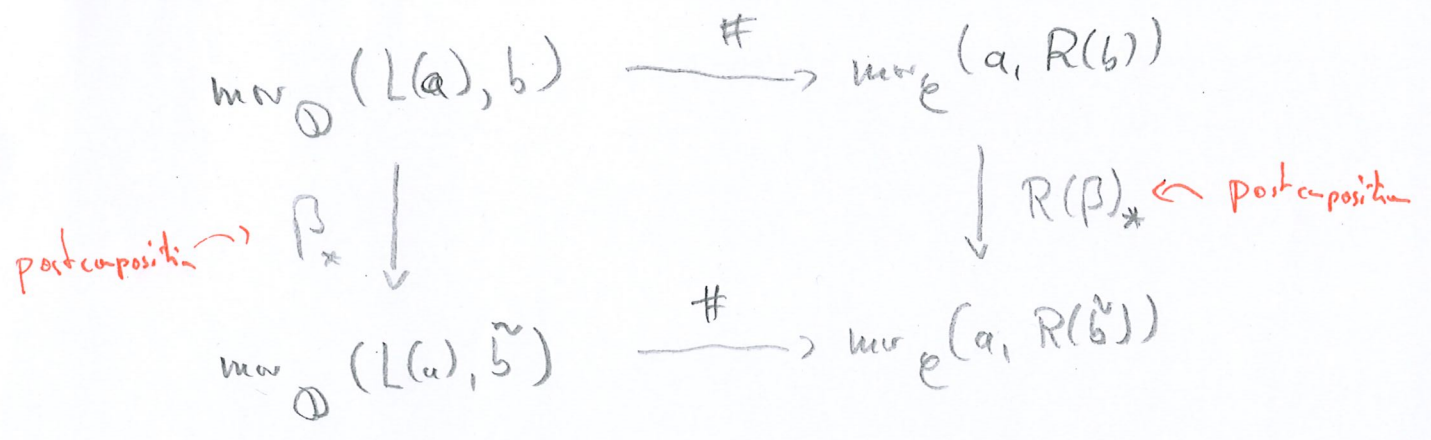 #
mor_D (L(a), b) → mor_C (a, R(b))
β_* R(β)_* ← postcomposition
postcomposition →
#
mor_D (L(a), b̃) → mor_C (a, R(b̃))